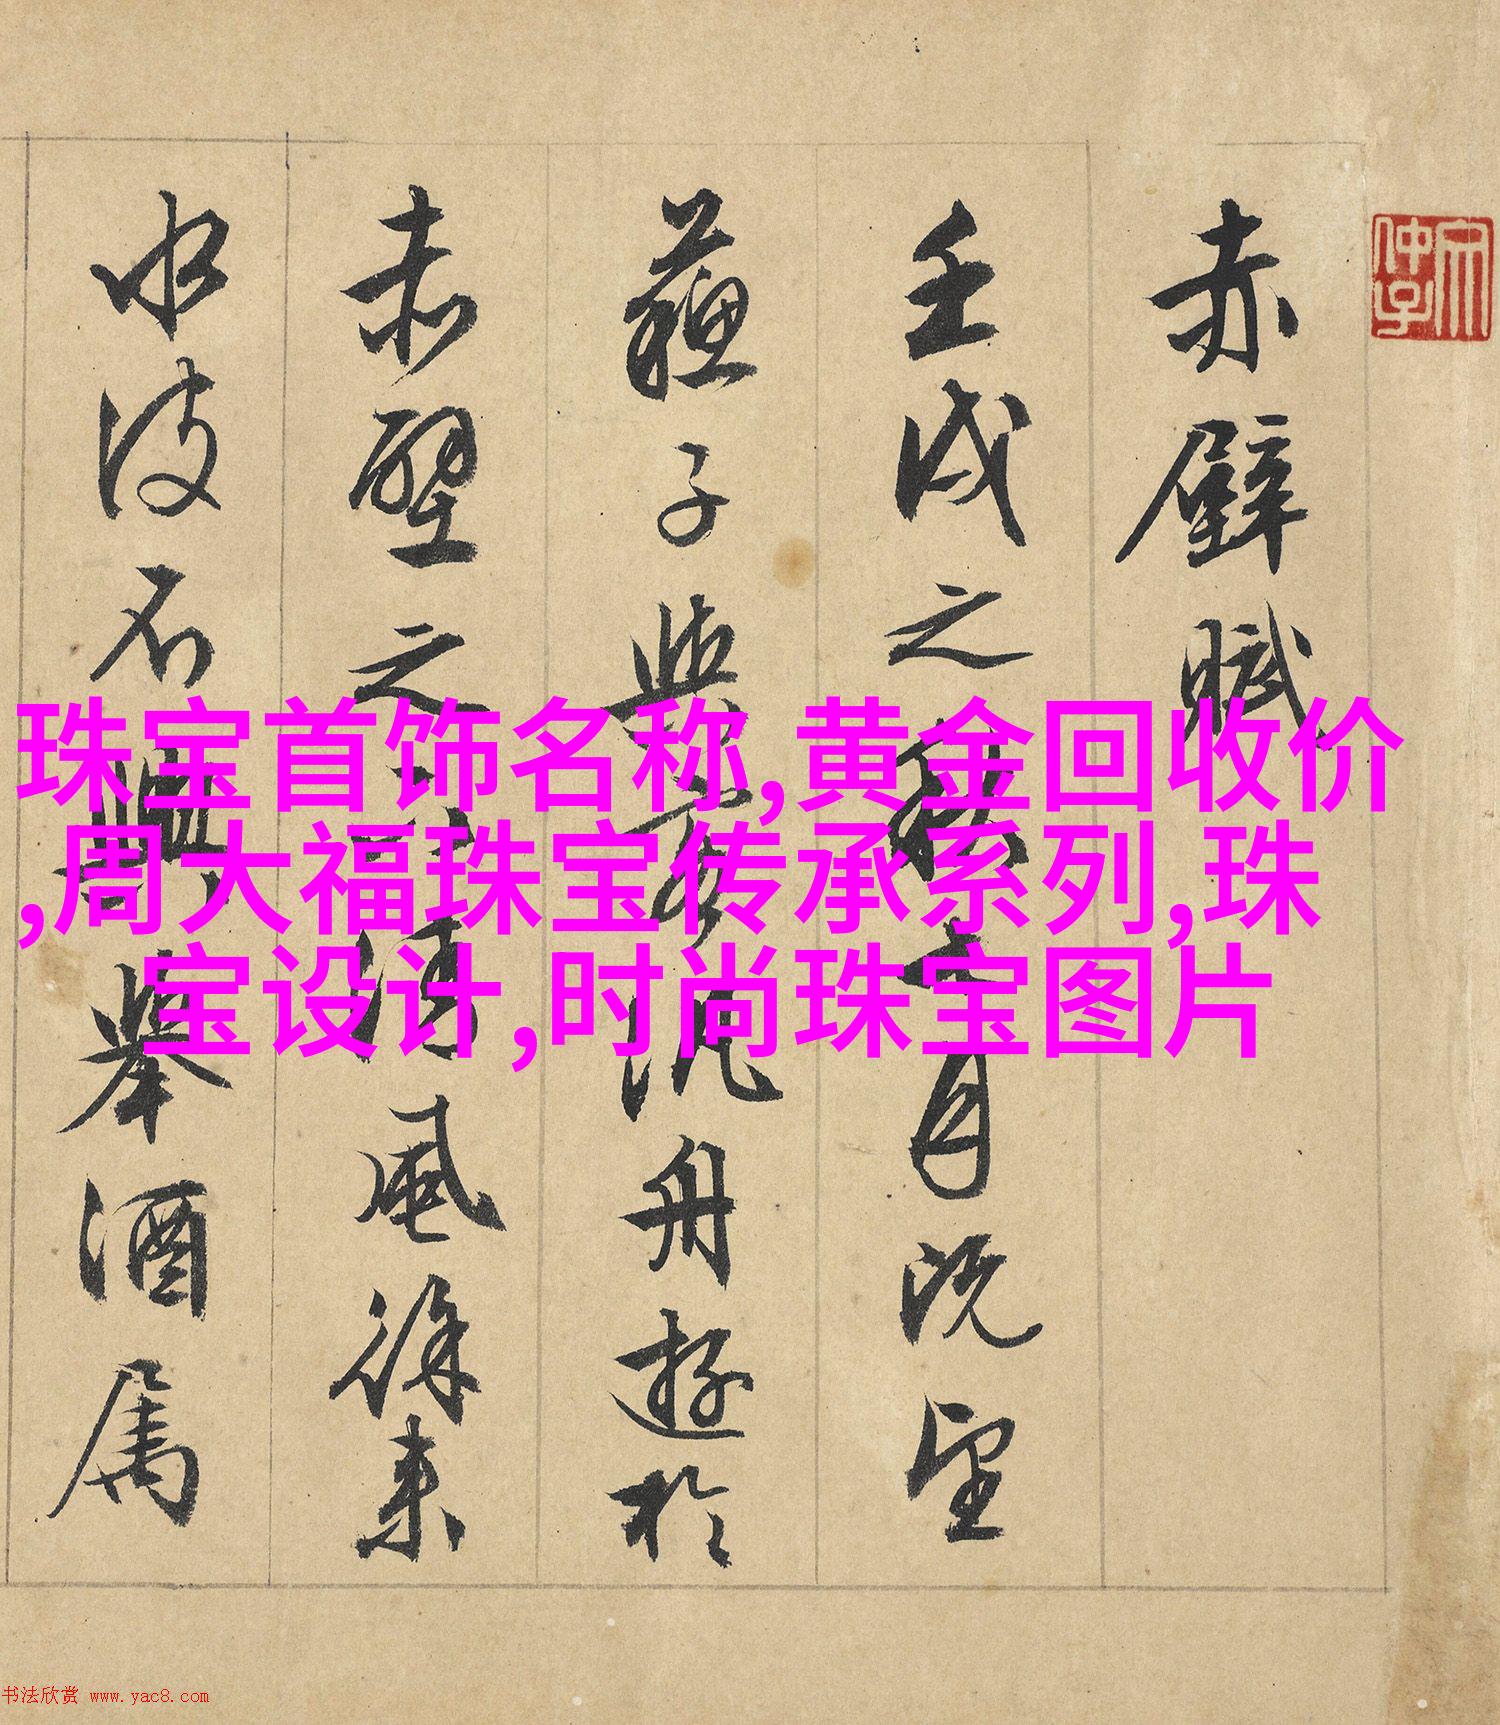 赤壁賦
壬戌之秋七月既望
蘇子與客泛舟遊於
赤壁之下清風徐来
水波不興舉酒属
珠宝首饰名称,黄金回收价
,周大福珠宝传承系列,珠
宝设计,时尚珠宝图片
书法欣赏 www.yac8.com